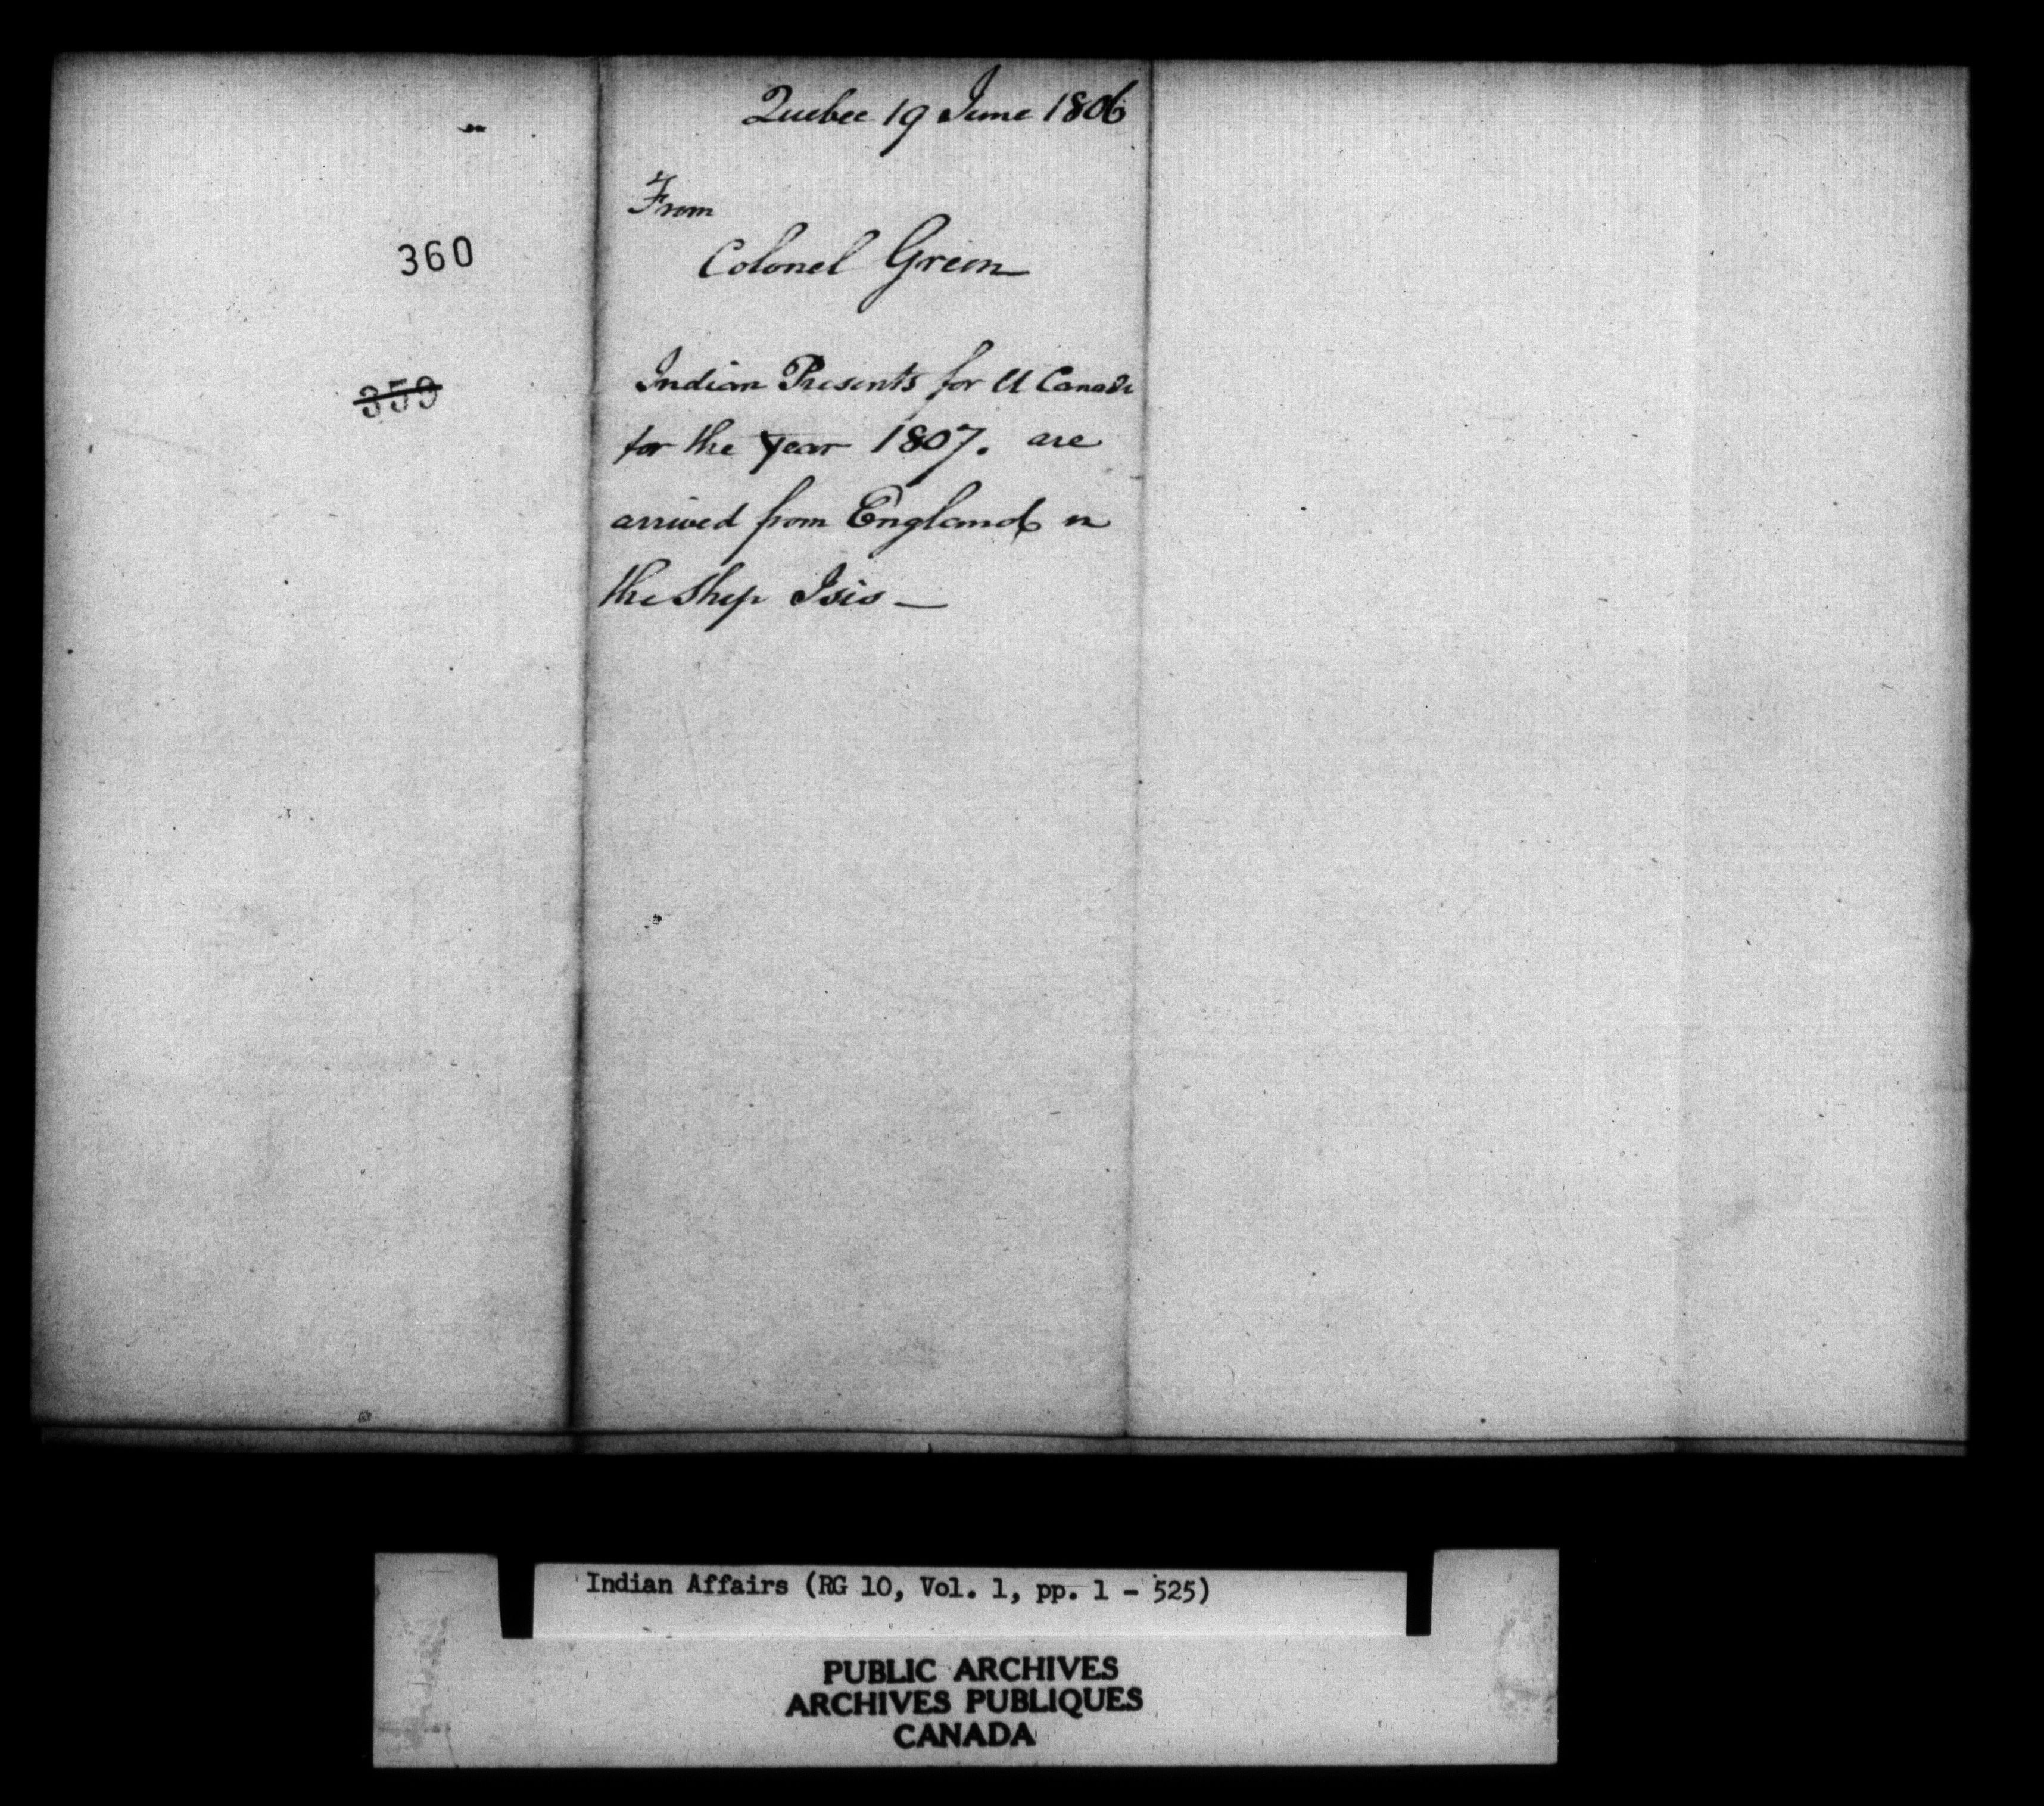 Quebec 19 June 1806
From
Colonel Green
360
359
Indian Presents for U Canada
for the year 1807. are
arrived from England in
the Ship Isis —
Indian Affairs (RG 10, Vol. 1, pp. 1 - 525)
PUBLIC ARCHIVES
ARCHIVES PUBLIQUES
CANADA